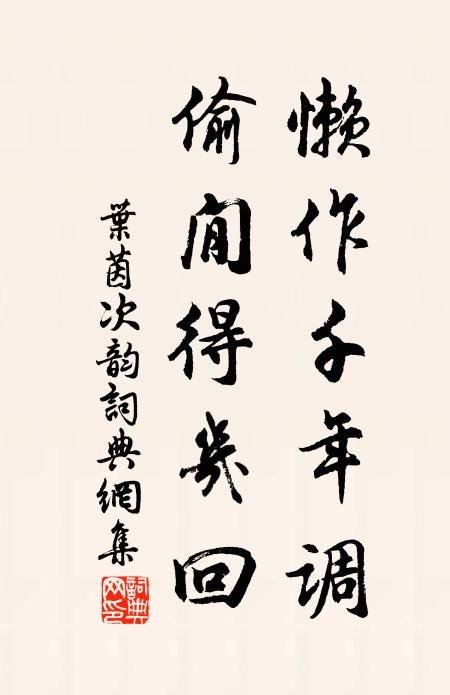 懒作千年调
偷闲得幾回
葉茵次韵詞典網集
詞典网印